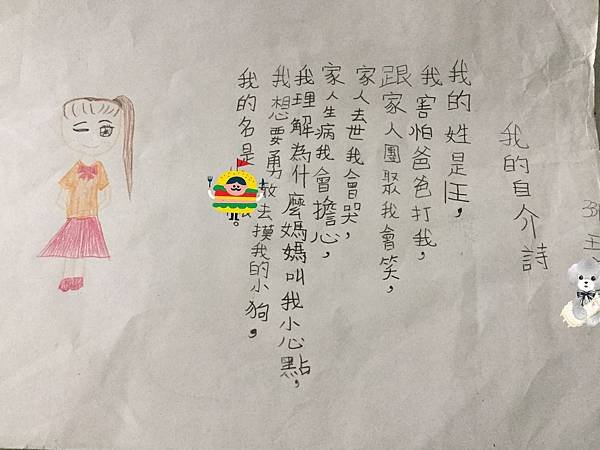 王
我的自介詩
我的姓是王，
我害怕爸爸打我，
跟家人團聚我會笑，
家人去世我會哭，
家人生病我會擔心，
我理解為什麼媽媽叫我小心點，
我想要勇敢去摸我的小狗，
我的名是